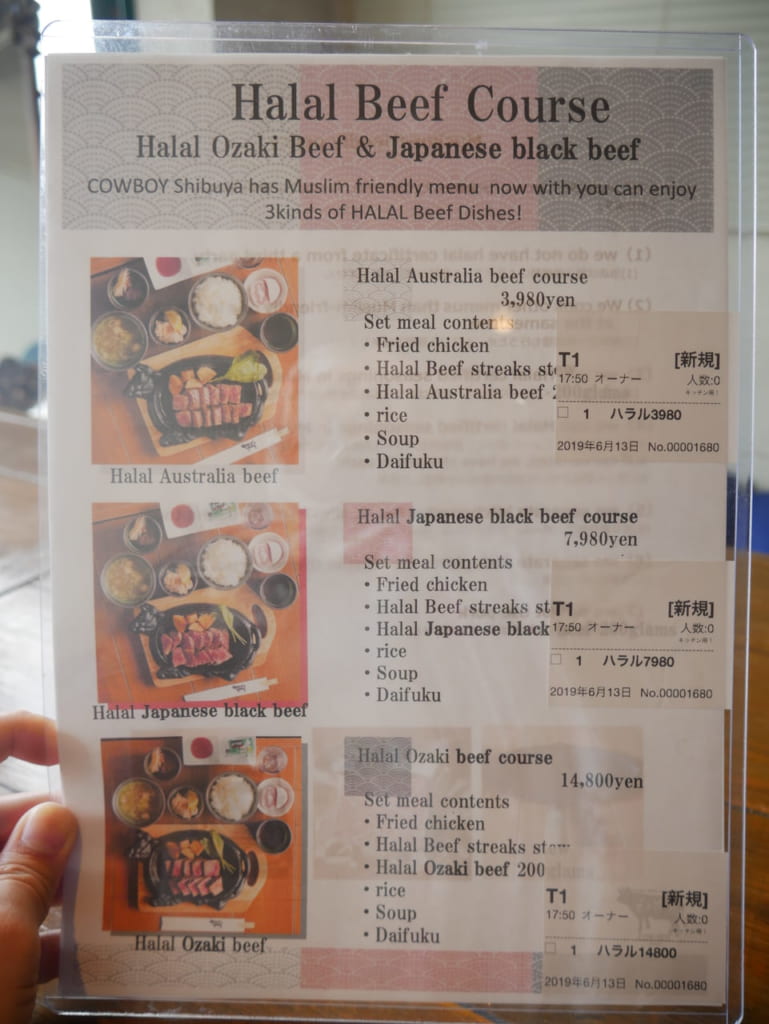 Halal Beef Course
Halal Ozaki Beef & Japanese black beef
COWBOY Shibuya has Muslim friendly menu now with you can enjoy
3kinds of HALAL Beef Dishes!
Halal Australia beef course
3,980yen
Set meal contents
・Fried chicken
・Halal Beef streaks
・Halal Australia beef
・rice
・Soup
・Daifuku
Halal Australia beef
T1 [新規]
17:50 オーナー 人数:0
キッチン用!
□ 1 ハラル3980
2019年6月13日 No.00001680
Halal Japanese black beef course
7,980yen
Set meal contents
・Fried chicken
・Halal Beef streaks
・Halal Japanese black
・rice
・Soup
・Daifuku
Halal Japanese black beef
T1 [新規]
17:50 オーナー 人数:0
キッチン用!
□ 1 ハラル7980
2019年6月13日 No.00001680
Halal Ozaki beef course
14,800yen
Set meal contents
・Fried chicken
・Halal Beef streaks
・Halal Ozaki beef 200
・rice
・Soup
・Daifuku
Halal Ozaki beef
T1 [新規]
17:50 オーナー 人数:0
キッチン用!
□ 1 ハラル14800
2019年6月13日 No.00001680